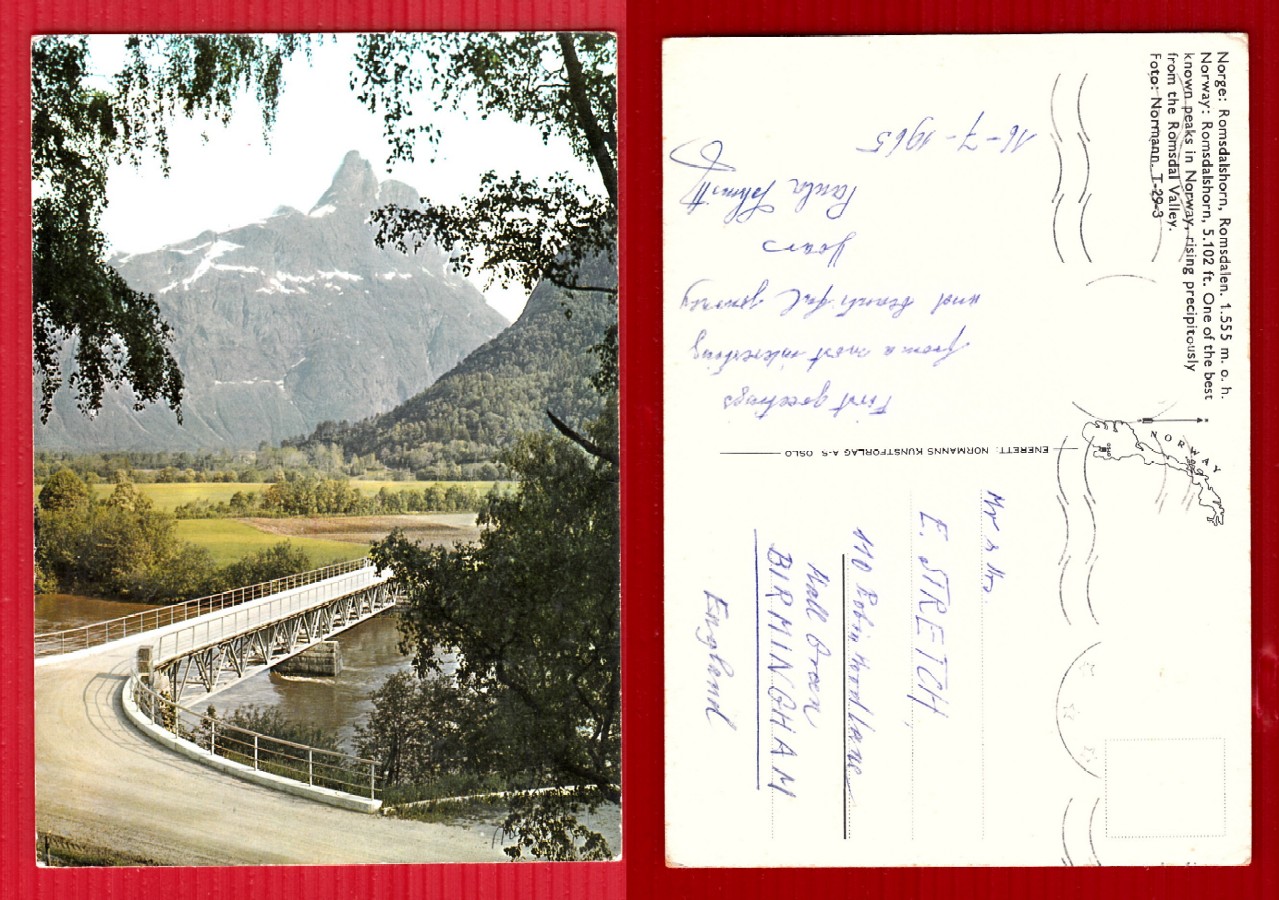 Norge: Romsdalshorn, Romsdalen. 1.555 m. o. h.
Norway: Romsdalshorn, 5.102 ft. One of the best
known peaks in Norway, rising precipitously
from the Romsdal Valley.
Foto: Normann. T-29-3
NORWAY
ENERETT: NORMANNS KUNSTFORLAG A-S OSLO
16-7-1965
First greetings
from a most interesting
and beautiful journey
Yours
Paula Schmitt
Mr &
E. STRETCH,
110 Robin Hood Lane
Hall Green
BIRMINGHAM
England